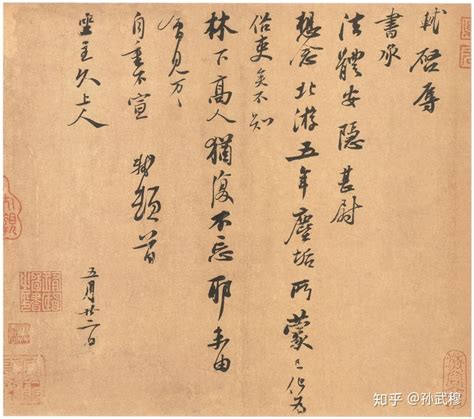 軾啓辱
書承
法體安隱甚慰
想念北游五年塵垢所蒙已化為
俗吏矣不知
林下高人猶復不忘耶未由
會見万万
自重不宣
軾頓首
靈主久上人
五月廿二日
知乎 @孙武穆